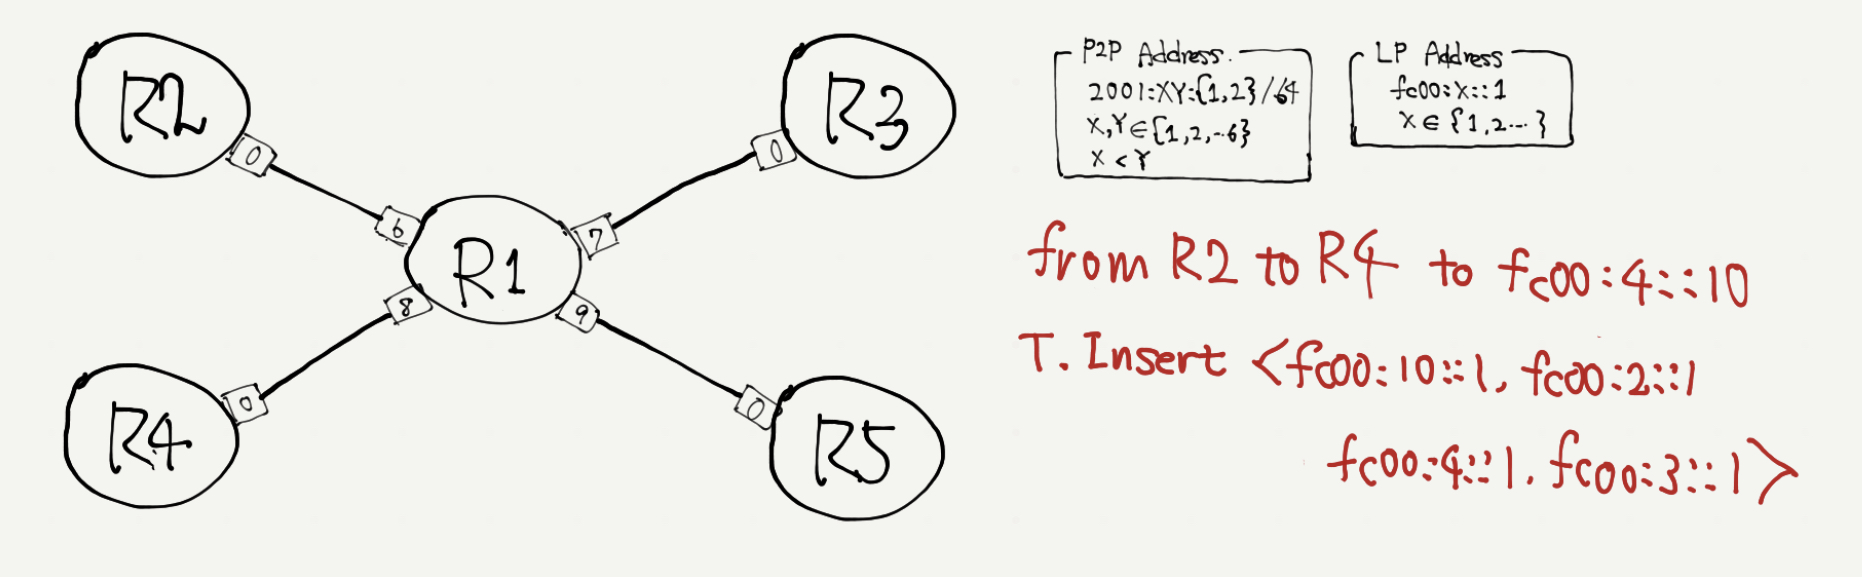 R2
0
6
R1
7
0
R3
8
0
R4
9
0
R5
P2P Address
2001:XY:{1,2}/64
X,Y∈{1,2,..6}
X<Y
LP Address
fc00:X::1
X∈{1,2...}
from R2 to R4 to fc00:4::10
T.Insert <fc00:10::1, fc00:2::1
fc00:4::1, fc00:3::1>